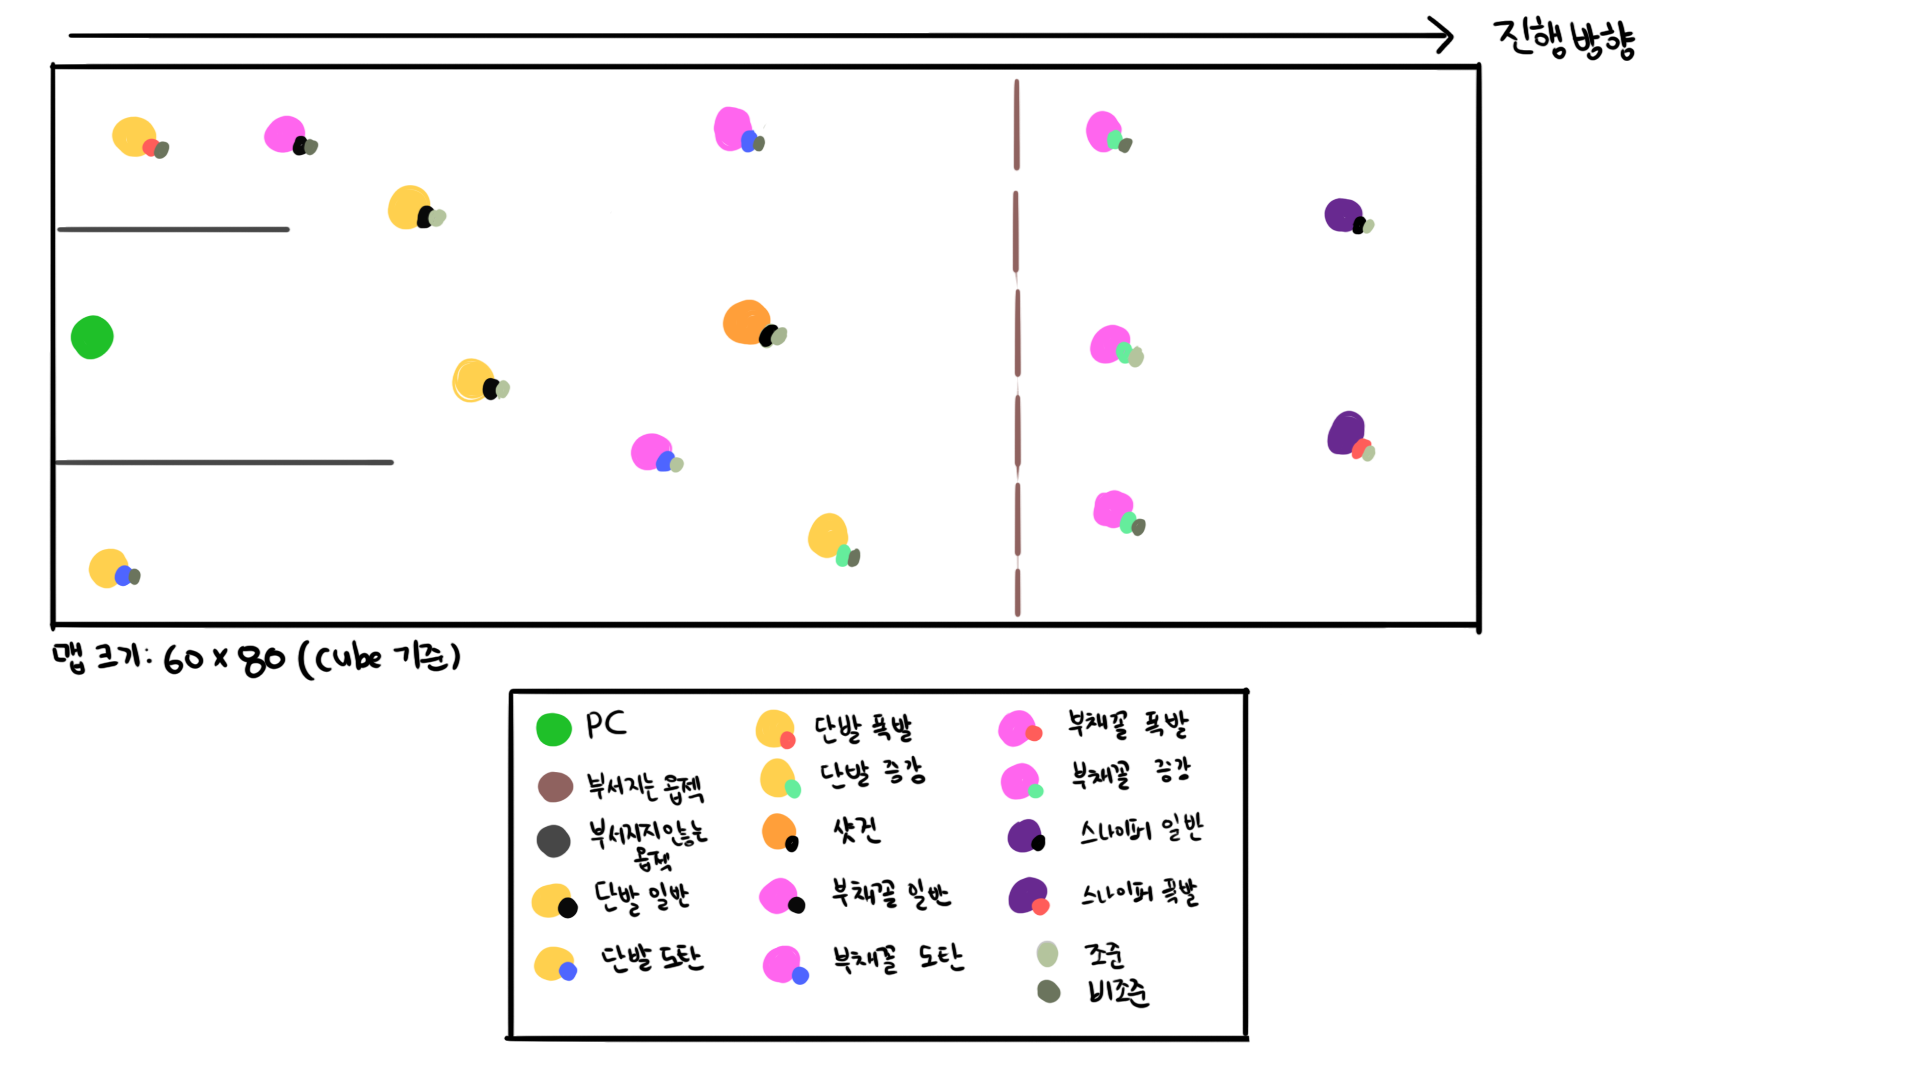 진행방향
맵 크기: 60 x 80 (Cube 기준)
PC
부서지는 옵젝
부서지지 않는
옵젝
단발 일반
단발 도탄
단발 폭발
단발 증강
샷건
부채꼴 일반
부채꼴 도탄
부채꼴 폭발
부채꼴 증강
스나이퍼 일반
스나이퍼 폭발
조준
비조준